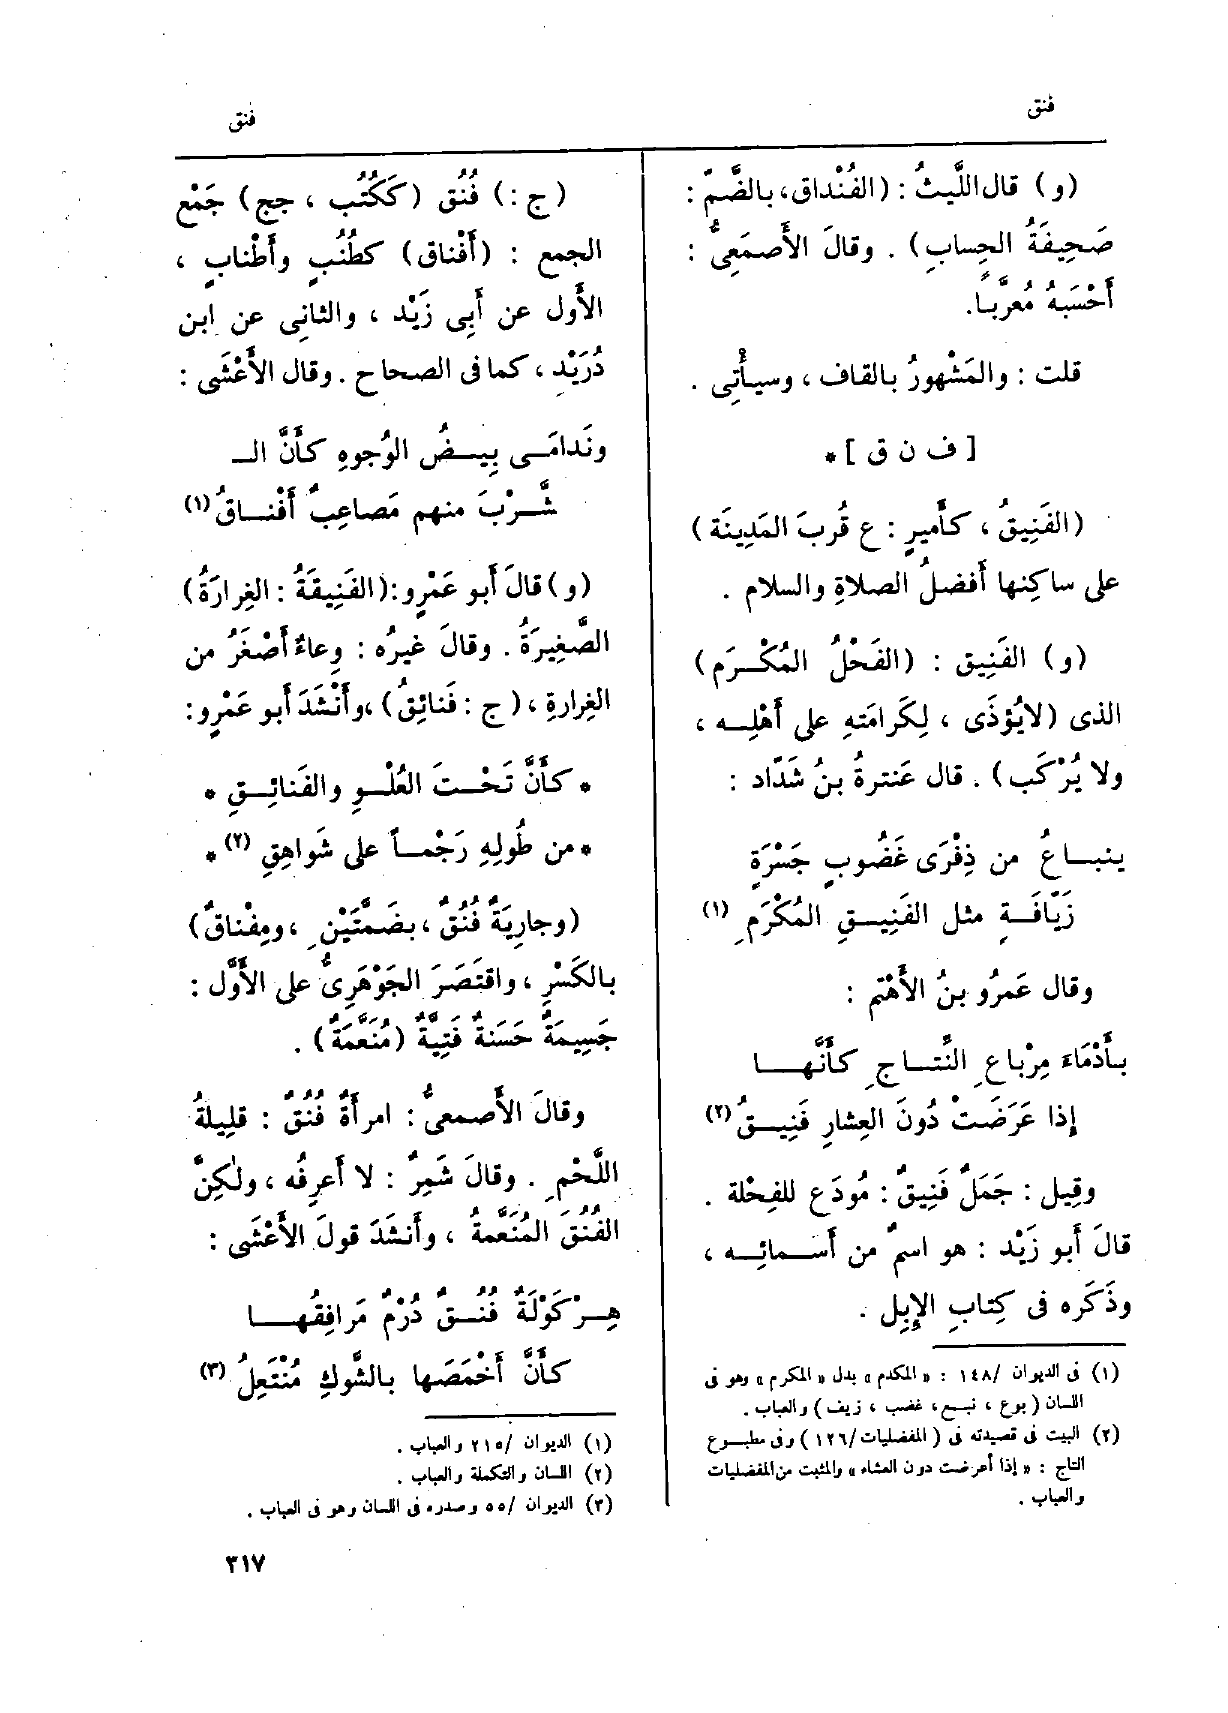 فنق
(و) قال اللَّيثُ : (الفُنْداق، بالضَّمّ :
صَحِيفَةُ الحِسابِ) . وقالَ الأَصمَعِىُّ :
أَحْسَبُهُ مُعرَّباً.
قلت : والمَشْهورُ بالقاف ، وسيأْتِى .
[ ف ن ق ] *
(الفَنِيقُ ، كأَميرٍ : ع قُربَ المَدِينَة)
على ساكِنها أَفضلُ الصلاةِ والسلام .
(و) الفَنِيق : (الفَحْلُ المُكْرَم)
الذى (لايُؤذَى ، لِكَرامَتهِ على أَهْلِه ،
ولا يُرْكَب) . قال عَنترةُ بنُ شَدّاد :
ينباعُ من ذِفْرَى غَضُوبٍ جَسْرَةٍ
زَيّافَةٍ مثل الفَنِيقِ المُكْرَمِ (١)
وقال عَمرُو بنُ الأَهْتمِ :
بأَدْمَاءَ مِرْباعِ النِّتاجِ كأَنَّها
إذا عَرَضَتْ دُونَ العِشارِ فَنِيقُ (٢)
وقِيل : جَمَلٌ فَنِيقٌ : مُودَع للفِحْلة .
قالَ أَبو زَيْد : هو اسمٌ من أَسمائِه ،
وذَكَره فى كِتابِ الإِبِل .
(١) فى الديوان /١٤٨ : « المكدم » بدل « المكرم » وهو فى
اللسان ( بوع ، نبع ، غضب ، زيف ) والعباب .
(٢) البيت فى قصيدته فى ( المفضليات/١٢٦ ) وفى مطبوع
التاج : « إذا أعرضت دون العشاء » والمثبت من المفضليات
والعباب .
فنق
(ج :) فُنُق (كَكُتُب ، جج) جَمْع
الجمع : (أَفْناق) كطُنُبٍ وأَطْنابٍ ،
الأَول عن أَبِى زَيْد ، والثانِى عن ابن
دُرَيْدٍ ، كما فى الصحاح . وقال الأَعْشَى :
ونَدامَى بِيضُ الوُجوهِ كأَنَّ الـ
شَّرْبَ منهم مَصاعِبٌ أَفْناقُ (١)
(و) قالَ أَبو عَمْرٍو: (الفَنِيقَةُ : الغِرارَةُ)
الصَّغِيرَةُ . وقالَ غيرُه : وِعاءٌ أَصْغَرُ من
الغِرارةِ ، (ج : فَنائِقُ) ، وأَنْشَدَ أَبو عَمْرٍو:
* كأَنَّ تَحْتَ العُلْوِ والفَنائِقِ *
* من طُولِهِ رَجْماً على شَواهِقِ (٢) *
(وجارِيَةٌ فُنُقٌ ، بضَمَّتَيْنِ ، ومِفْناقٌ)
بالكَسْرِ ، واقتَصَرَ الجَوْهَرِىُّ على الأَوَّل :
جَسِيمَةٌ حَسَنةٌ فَتِيَّةٌ (مُنَعَّمَةٌ) .
وقالَ الأَصمعىُّ : امرأَةٌ فُنُقٌ : قلِيلةُ
اللَّحْمِ . وقالَ شَمِرٌ : لا أَعرِفُه ، ولكِنَّ
الفُنُقَ المُنَعَّمةُ ، وأَنشَدَ قولَ الأَعْشَى :
هِرْكَوْلَةٌ فُنُقٌ دُرْمٌ مَرافِقُها
كأَنَّ أَخْمَصَها بالشَّوكِ مُنْتَعِلُ (٣)
(١) الديوان /٢١٥ والعباب .
(٢) اللسان والتكملة والعباب .
(٣) الديوان /٥٥ وصدره فى اللسان وهو فى العباب .
٣١٧